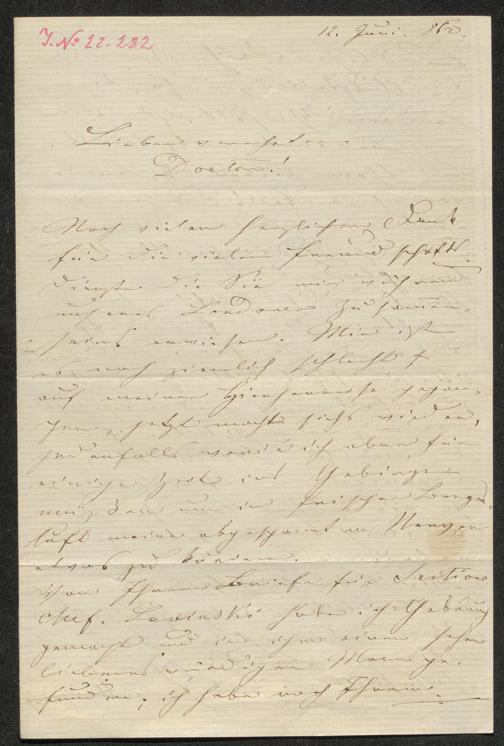 J. No 22.282
12. Juni. 862.
Lieber verehrter
Doctor!
Noch vielen herzlichen Dank
für die vielen Freundschafts-
dienste die Sie mir während
unseres Londoner Zusammen-
seins erwiesen. Mir ist
es noch ziemlich schlecht
auf meiner Hieherreise gegan-
gen, jetzt macht sichs wieder,
jedenfalls werde ich aber für
einige Zeit ins Gebirge
müssen um in frischer Berges-
luft meine abgespannten Nerven
etwas zu kuriren.
Von Ihrem Briefe für Sections
Chef. Lewinski habe ich Gebrauch
gemacht und in ihm einen sehr
liebenswürdigen Mann ge-
funden; ich habe nach Ihrem